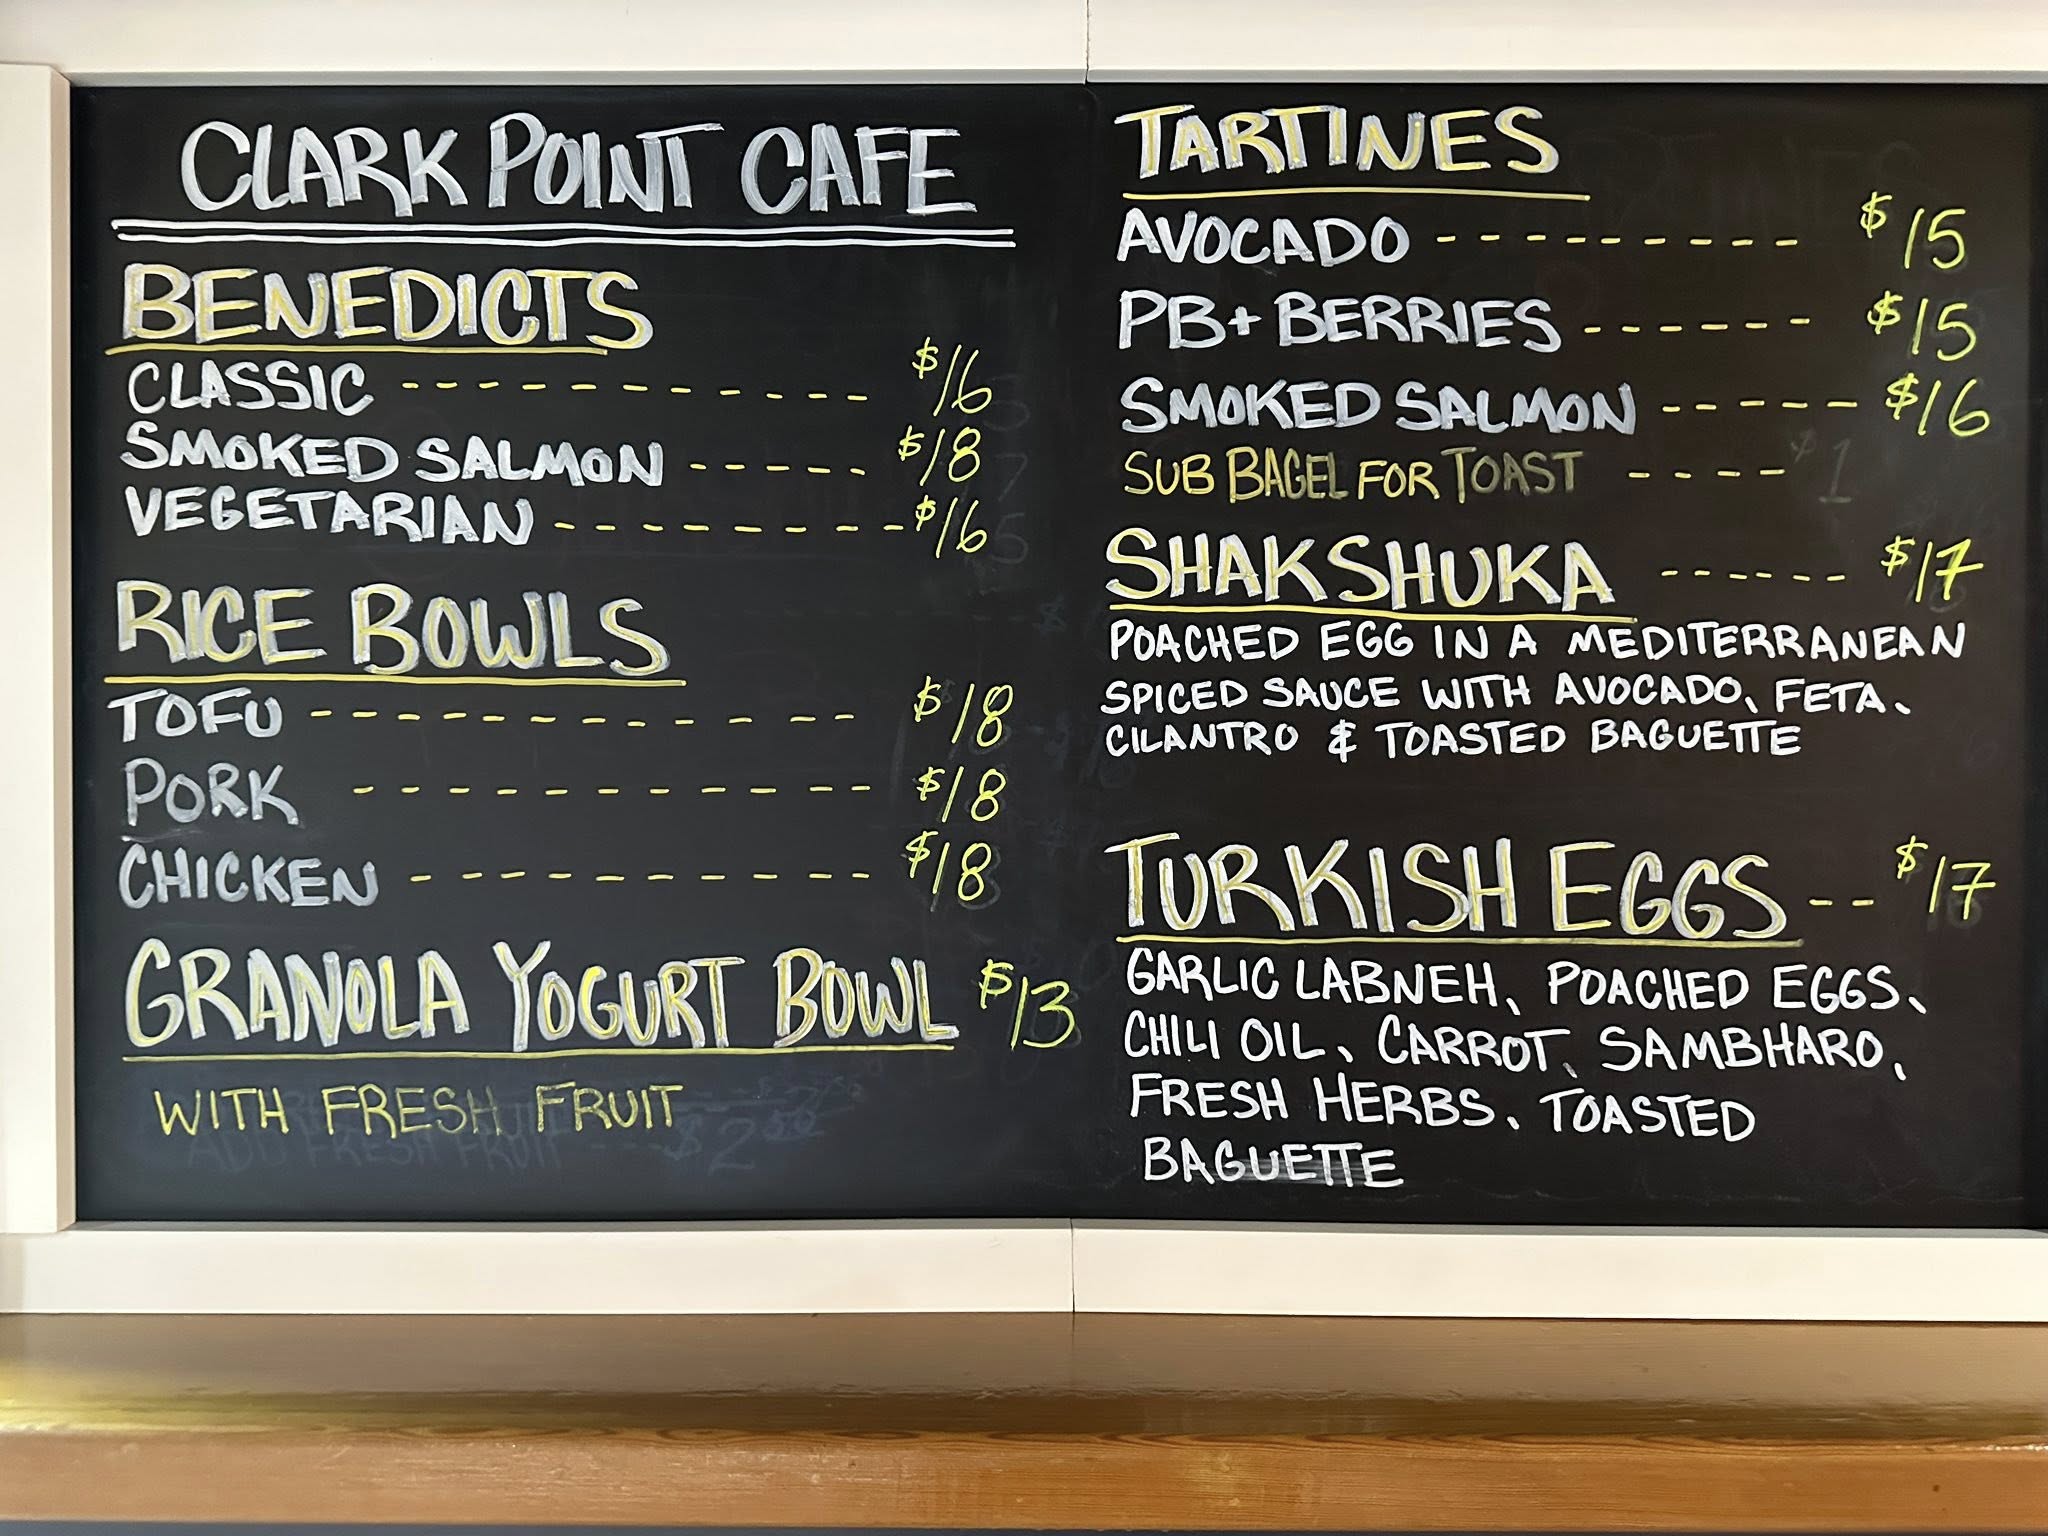 CLARK POINT CAFE
BENEDICTS
CLASSIC ----------- $16
SMOKED SALMON ----- $18
VEGETARIAN --------- $16
RICE BOWLS
TOFU ------------ $18
PORK ------------ $18
CHICKEN ----------- $18
GRANOLA YOGURT BOWL $13
WITH FRESH FRUIT
ADD FRESH FRUIT --- $2.50
TARTINES
AVOCADO --------- $15
PB + BERRIES ------ $15
SMOKED SALMON ----- $16
SUB BAGEL FOR TOAST ---- $1
SHAKSHUKA ------ $17
POACHED EGG IN A MEDITERRANEAN
SPICED SAUCE WITH AVOCADO, FETA,
CILANTRO & TOASTED BAGUETTE
TURKISH EGGS -- $17
GARLIC LABNEH, POACHED EGGS,
CHILI OIL, CARROT, SAMBHARO,
FRESH HERBS, TOASTED
BAGUETTE